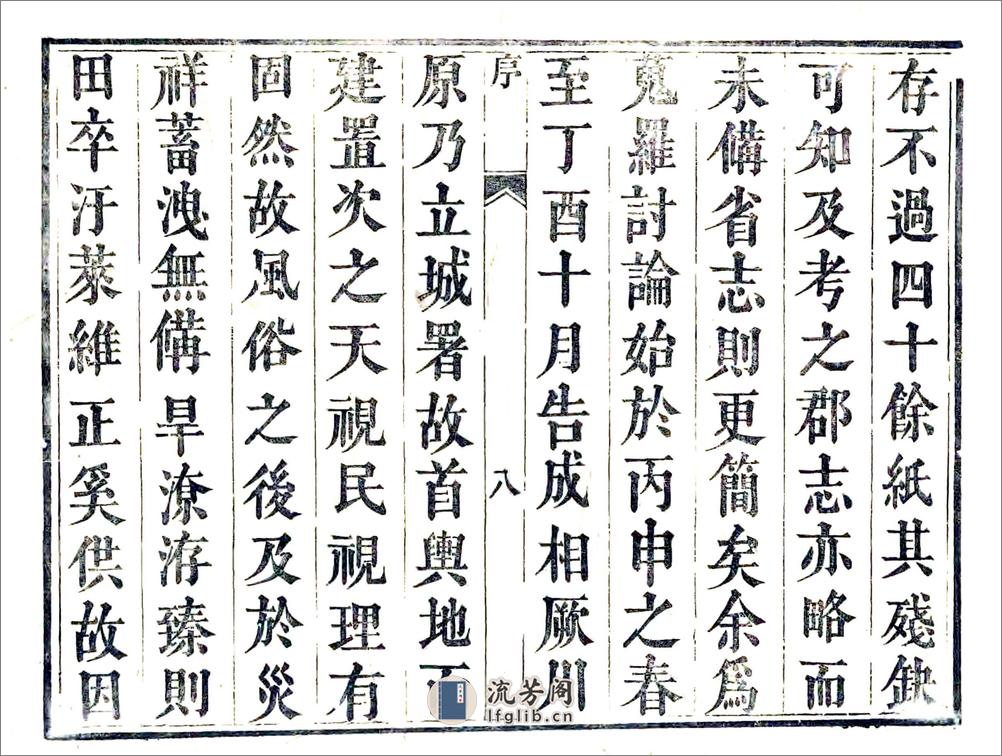 存不過四十餘紙其殘缺
可知及考之郡志亦略而
未備省志則更簡矣余爲
蒐羅討論始於丙申之春
至丁酉十月告成相厥川
序
八
原乃立城署故首輿地而
建置次之天視民視理有
固然故風俗之後及於災
祥蓄洩無備旱潦洊臻則
田卒汙萊維正奚供故因
流芳阁
lfglib.cn